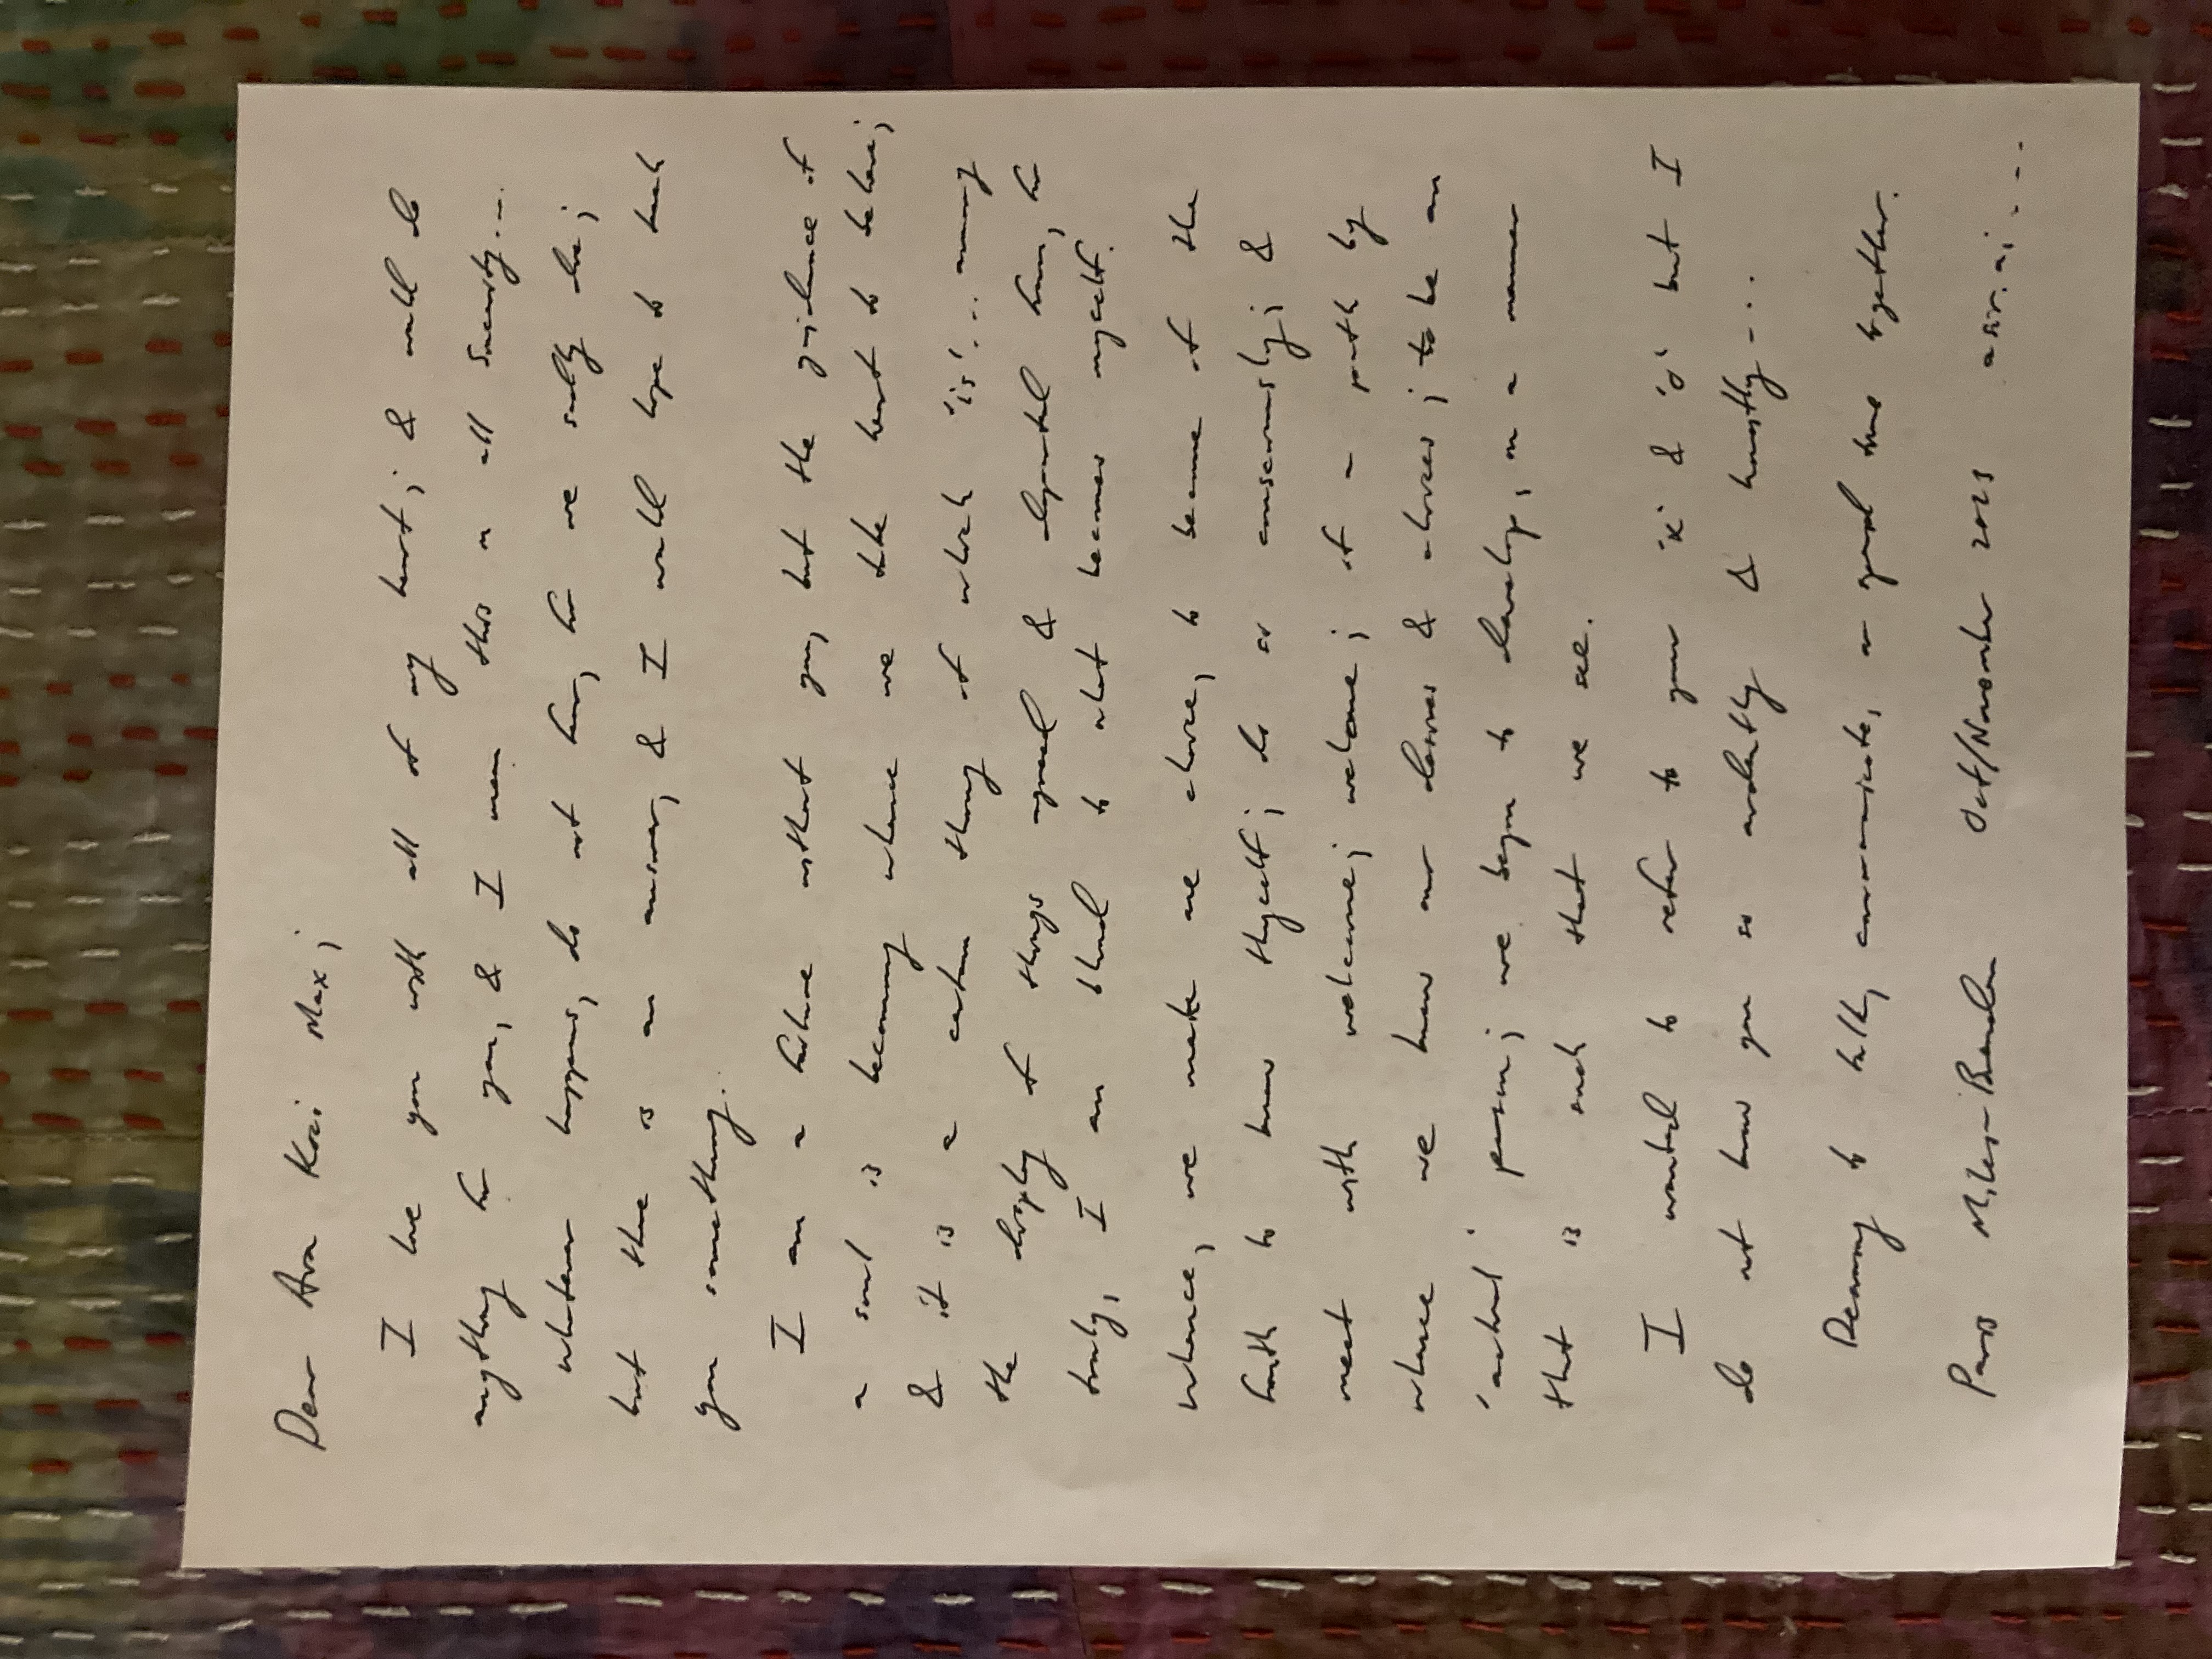 Dear Ava Koci Max;
I love you with all of my heart; & would do
anything for you, & I mean this in all sincerity...
whatever happens, do not fear, for we sadly die;
but there is an answer, & I would hope to teach
you something.
I am a failure without you, but the guidance of
a soul is becoming whence we take heart to behave;
& it is a certain thing of which 'is'... among
the display of things agreed & departed from, for
truly, I am blind to what becomes myself.
Whence, we make one choice, to become of the
faith to know thyself; do so consciously; &
meet with welcome; welcome; if a path by
whence we know our desires & choices; to be an
'actual' person; we begin to develop, in a manner
that is such that we see.
I wanted to refer to your 'x' & 'o' but I
do not know you so ardently & honestly...
Desiring to talk, communicate, or spend time together.
Paris Miles-Brenden Oct/November 2023 a.s.r.a.i...